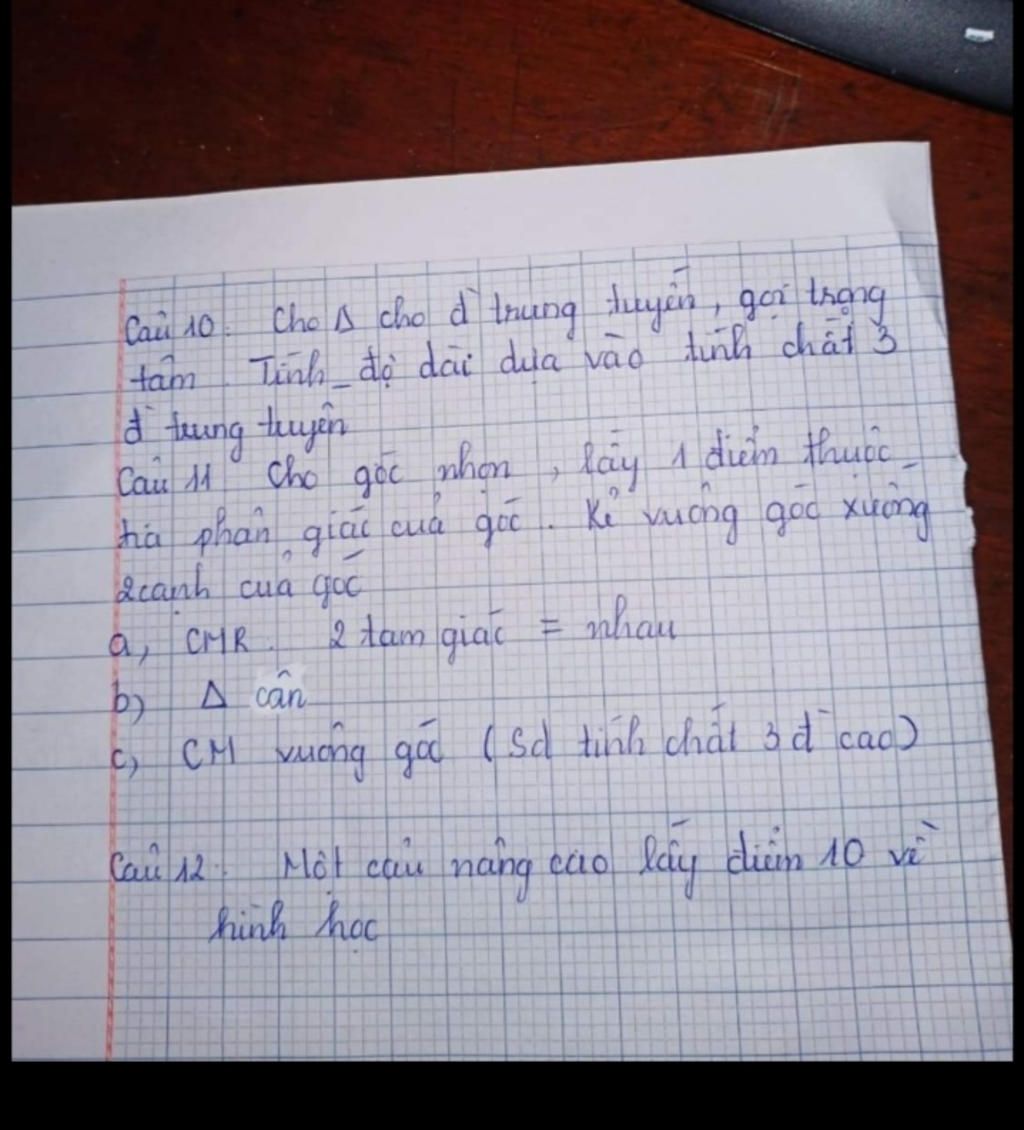 Câu 10. Cho Δ cho đ̀ trung tuyến, gọi trọng
tâm. Tính độ dài dựa vào tính chất 3
đ̀ trung tuyến
Câu 11 Cho góc nhọn, lấy 1 điểm thuộc
tia phân giác của góc. Kẻ vuông góc xuống
2 cạnh của góc
a, CMR. 2 tam giác = nhau
b) Δ cân
c, CM vuông góc (Sd tính chất 3 đ̀ cao)
Câu 12. Một câu nâng cao lấy điểm 10 về
hình học